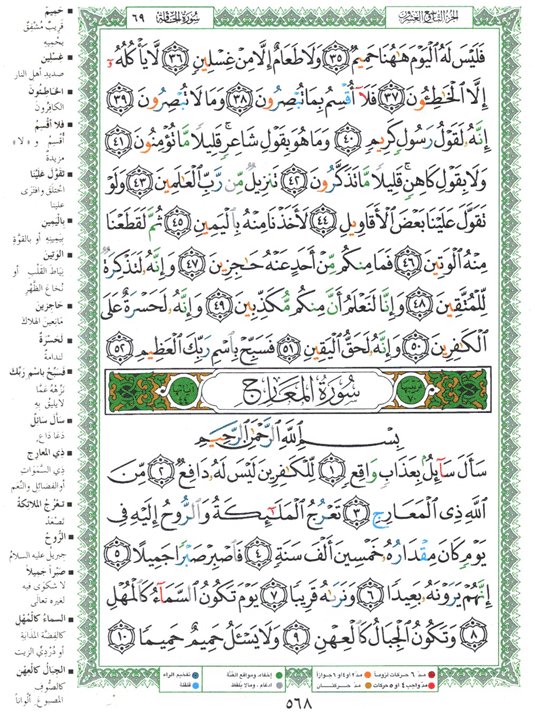 الجزء التاسع والعشرون
سورة الحاقة
٦٩
فَلَيْسَ لَهُ الْيَوْمَ هَاهُنَا حَمِيمٌ ٣٥ وَلَا طَعَامٌ إِلَّا مِنْ غِسْلِينٍ ٣٦ لَّا يَأْكُلُهُ
إِلَّا الْخَاطِئُونَ ٣٧ فَلَا أُقْسِمُ بِمَا تُبْصِرُونَ ٣٨ وَمَا لَا تُبْصِرُونَ ٣٩
إِنَّهُ لَقَوْلُ رَسُولٍ كَرِيمٍ ٤٠ وَمَا هُوَ بِقَوْلِ شَاعِرٍ ۚ قَلِيلًا مَّا تُؤْمِنُونَ ٤١
وَلَا بِقَوْلِ كَاهِنٍ ۚ قَلِيلًا مَّا تَذَكَّرُونَ ٤٢ تَنزِيلٌ مِّن رَّبِّ الْعَالَمِينَ ٤٣ وَلَوْ
تَقَوَّلَ عَلَيْنَا بَعْضَ الْأَقَاوِيلِ ٤٤ لَأَخَذْنَا مِنْهُ بِالْيَمِينِ ٤٥ ثُمَّ لَقَطَعْنَا
مِنْهُ الْوَتِينَ ٤٦ فَمَا مِنكُم مِّنْ أَحَدٍ عَنْهُ حَاجِزِينَ ٤٧ وَإِنَّهُ لَتَذْكِرَةٌ
لِّلْمُتَّقِينَ ٤٨ وَإِنَّا لَنَعْلَمُ أَنَّ مِنكُم مُّكَذِّبِينَ ٤٩ وَإِنَّهُ لَحَسْرَةٌ عَلَى
الْكَافِرِينَ ٥٠ وَإِنَّهُ لَحَقُّ الْيَقِينِ ٥١ فَسَبِّحْ بِاسْمِ رَبِّكَ الْعَظِيمِ ٥٢
سُورَةُ الْمَعَارِجِ
بِسْمِ اللَّهِ الرَّحْمَٰنِ الرَّحِيمِ
سَأَلَ سَائِلٌ بِعَذَابٍ وَاقِعٍ ١ لِّلْكَافِرِينَ لَيْسَ لَهُ دَافِعٌ ٢ مِّنَ
اللَّهِ ذِي الْمَعَارِجِ ٣ تَعْرُجُ الْمَلَائِكَةُ وَالرُّوحُ إِلَيْهِ فِي
يَوْمٍ كَانَ مِقْدَارُهُ خَمْسِينَ أَلْفَ سَنَةٍ ٤ فَاصْبِرْ صَبْرًا جَمِيلًا ٥
إِنَّهُمْ يَرَوْنَهُ بَعِيدًا ٦ وَنَرَاهُ قَرِيبًا ٧ يَوْمَ تَكُونُ السَّمَاءُ كَالْمُهْلِ
٨ وَتَكُونُ الْجِبَالُ كَالْعِهْنِ ٩ وَلَا يَسْأَلُ حَمِيمٌ حَمِيمًا ١٠
حَمِيمٌ
قريبٌ مشفقٌ
يحميه
غِسْلِين
صديد أهل النار
الخاطئون
الكافرون
فلا أقسم
أقسم و «لا»
مزيدة
تقوّل علينا
اختلق وافترى
علينا
باليمين
بيمينه أو بالقوة
الوتين
نياط القلب أو
نخاع الظهر
حاجزين
مانعين الهلاك
لحسرة
لندامة
فسبح باسم ربك
نزّهه عمّا
لا يليق به
سأل سائل
دعا داع
ذي المعارج
ذي السموات
أو الفضائل والنعم
تعرج الملائكة
تصعد
الروح
جبريل عليه السلام
صبراً جميلاً
لا شكوى فيه
لغيره تعالى
السماء كالمهل
كالفضة المذابة
أو دُرديّ الزيت
الجبال كالعهن
كالصوف
المصبوغ ألواناً
مدّ ٦ حركات لزوماً
مدّ ٢ أو ٤ أو ٦ جوازاً
إخفاء، ومواقع الغنّة
تفخيم الراء
مدّ واجب ٤ أو ٥ حركات
مدّ حركتان
إدغام، وما لا يلفظ
قلقلة
٥٦٨